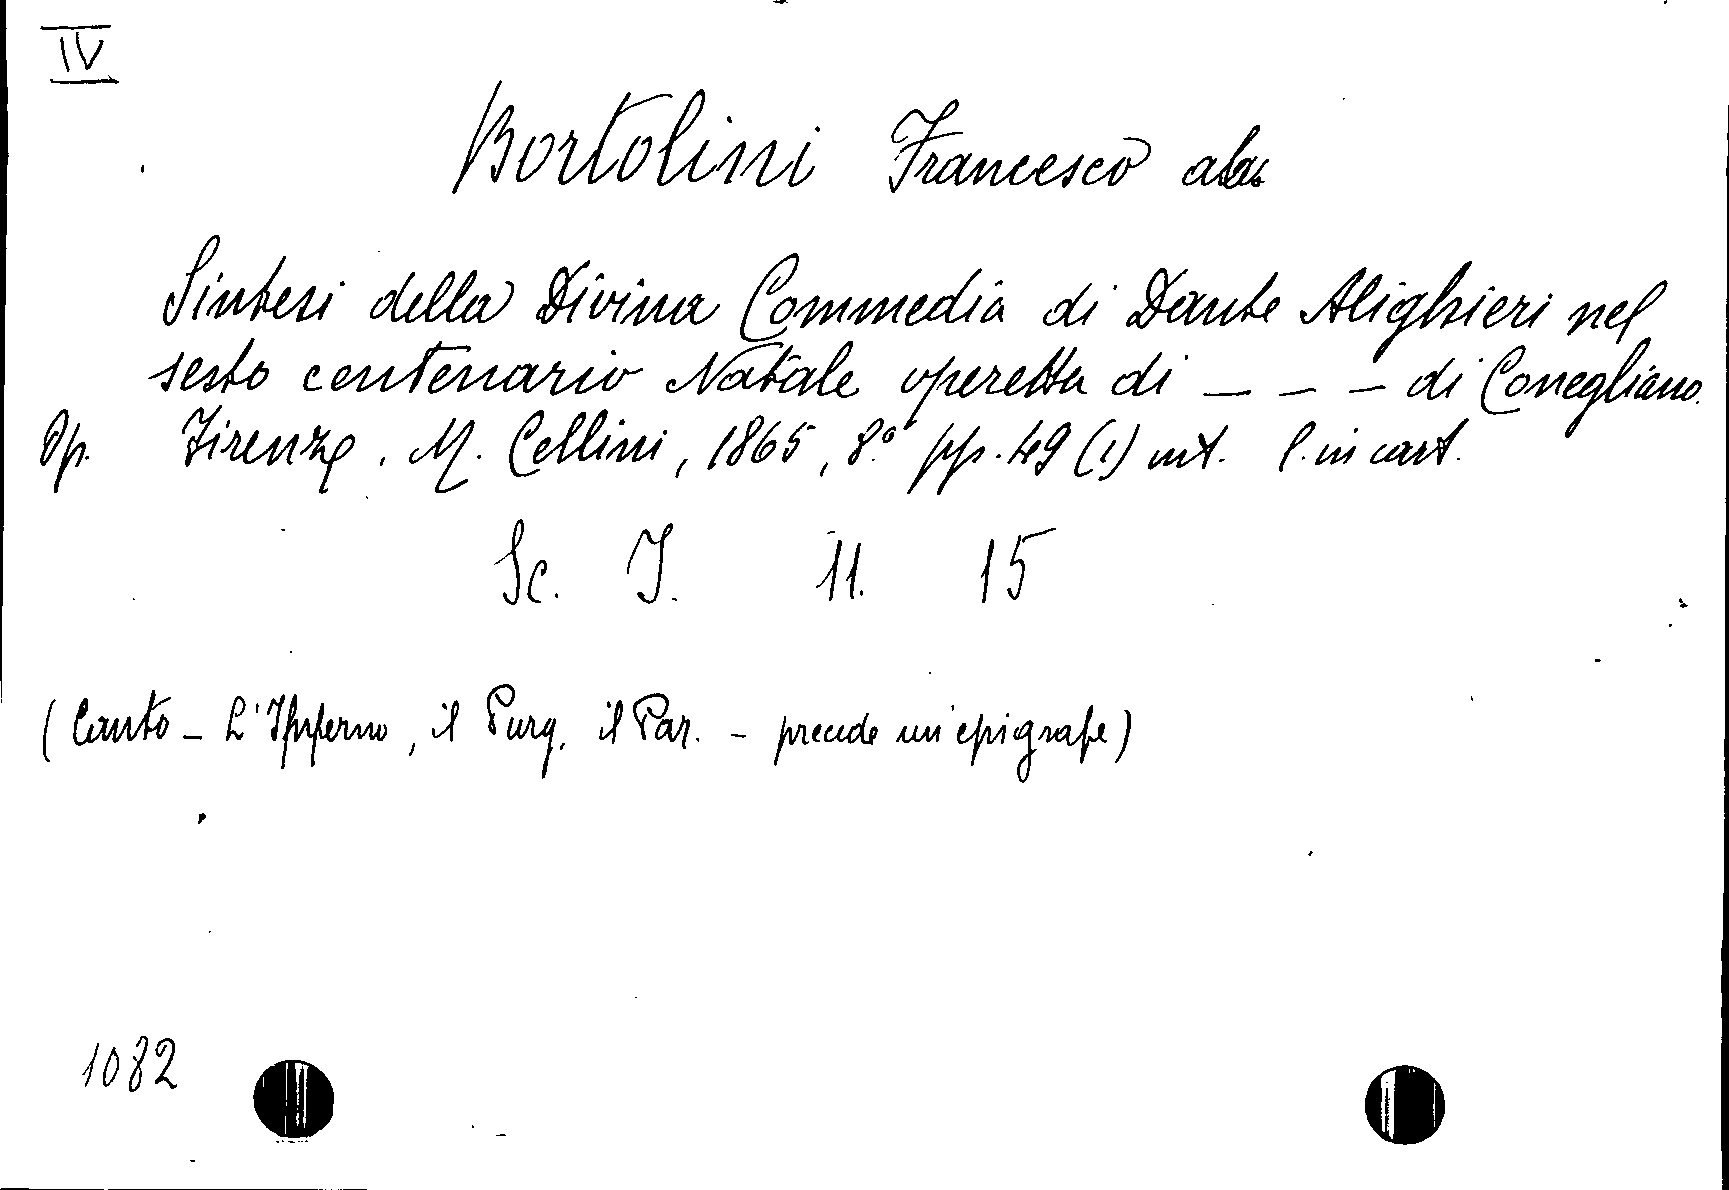 IV
Bortolini Francesco ab.
Sintesi della Divina Commedia di Dante Alighieri nel
sesto centenario Natale operetta di _ _ _ di Conegliano.
Op. Firenze, M. Cellini, 1865, 8.° pp. 49 (1) int. l. in cart.
Sc. I. 11. 15
(Canto - L'Inferno, il Purg, il Par. - precede un'epigrafe)
1082